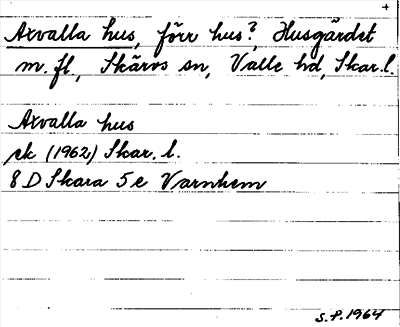 +
Axvalla hus, förr hus? Husgärdet
m. fl., Skärvs sn, Valle hd, Skar. l.
Axvalla hus
ek (1962) Skar. l.
8 D Skara 5 e Varnhem
S. P. 1964